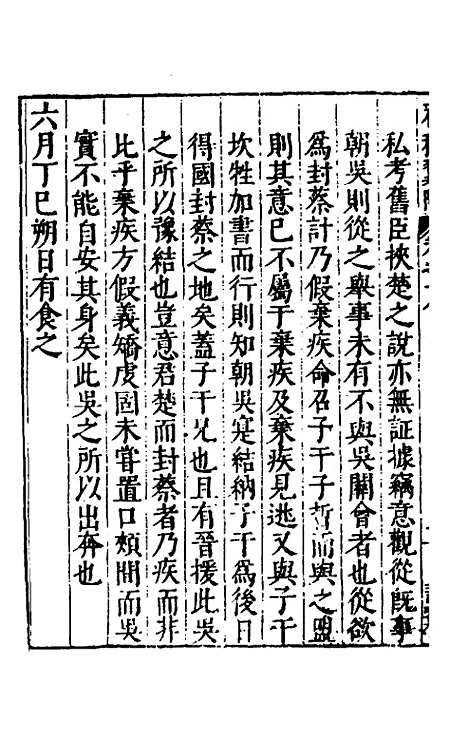 私考舊臣挾楚之說亦無証據竊意觀從旣事
朝吳則從之舉事未有不與吳關會者也從欲
爲封蔡計乃假棄疾命召子干子晳而與之盟
則其意已不屬于棄疾及棄疾見逃又與子干
坎牲加書而行則知朝吳寔結納子干爲後日
得國封蔡之地矣蓋子干兄也且有晉援此吳
之所以豫結也豈意君楚而封蔡者乃疾而非
比乎棄疾方假義矯虔固未甞置口頰間而吳
實不能自安其身矣此吳之所以出奔也
六月丁巳朔日有食之